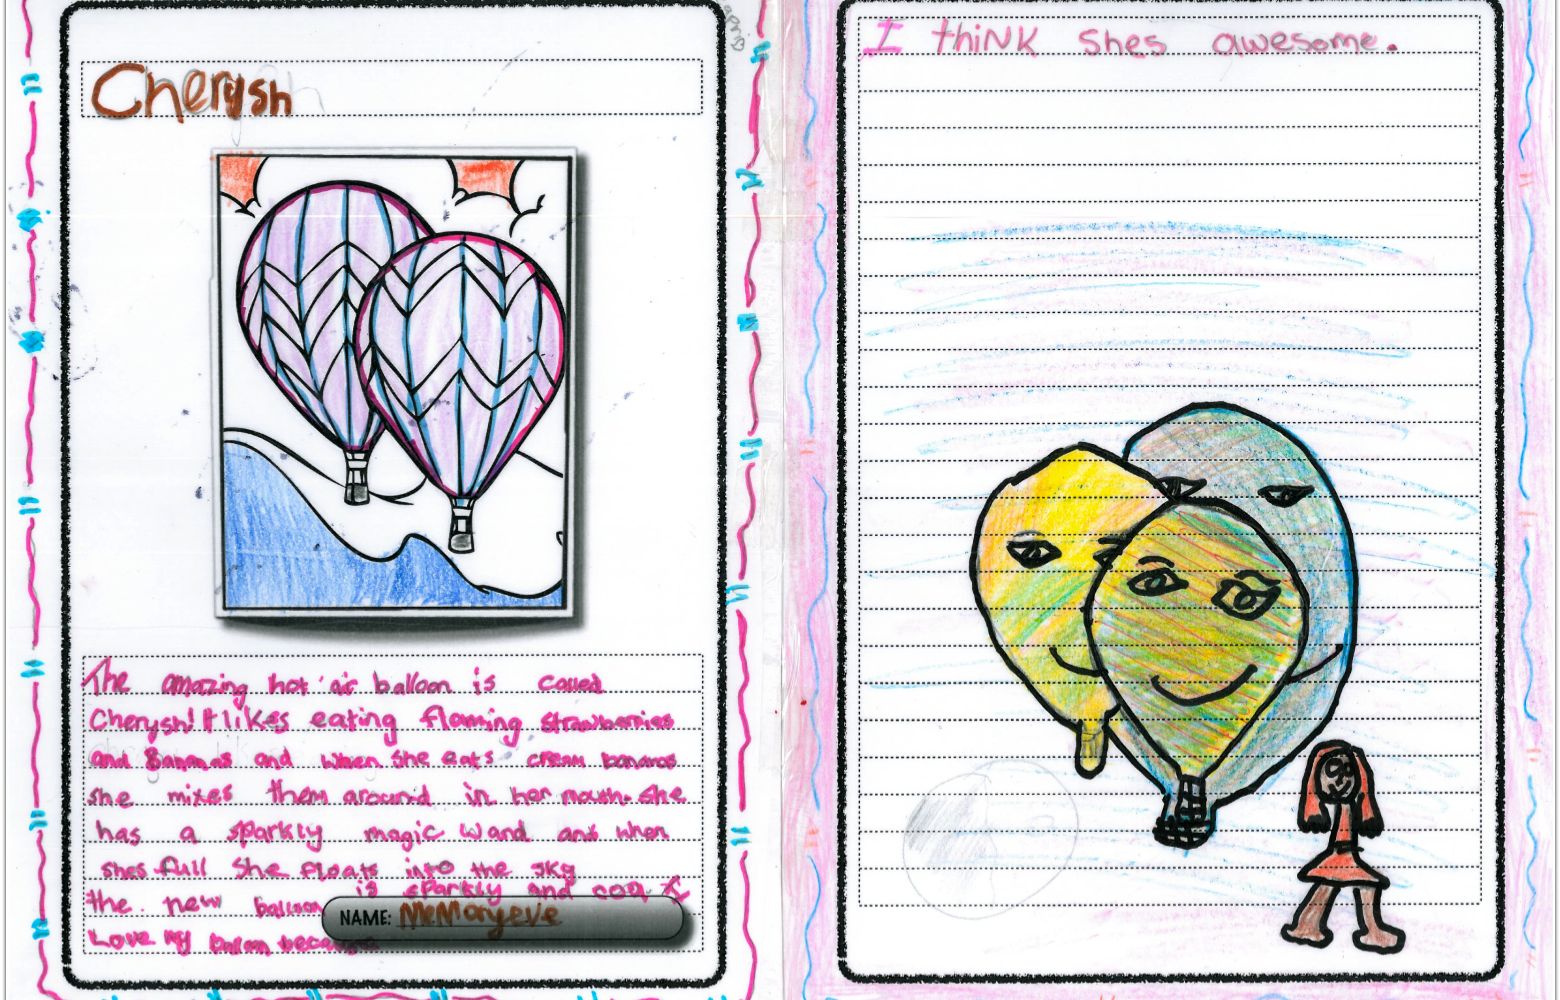 Cherysh
The amazing hot air balloon is called
Cherysh! It likes eating flaming strawberries
and Bananas and when she eats cream bananas
she mixes them around in her mouth. She
has a sparkly magic wand and when
shes full she floats into the sky
the new balloon is sparkly and I
Love my because
NAME: MeMoryeve
I thiNK shes awesome.